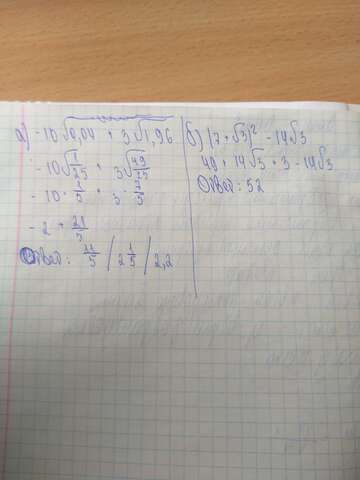 а) -10√0,04 + 3√1,96
-10√1/25 + 3√49/25
-10 · 1/5 + 3 · 7/5
-2 + 21/5
Ответ: 11/5 / 2 1/5 / 2,2
б) (7 + √3)² - 14√3
49 + 14√3 + 3 - 14√3
Ответ: 52